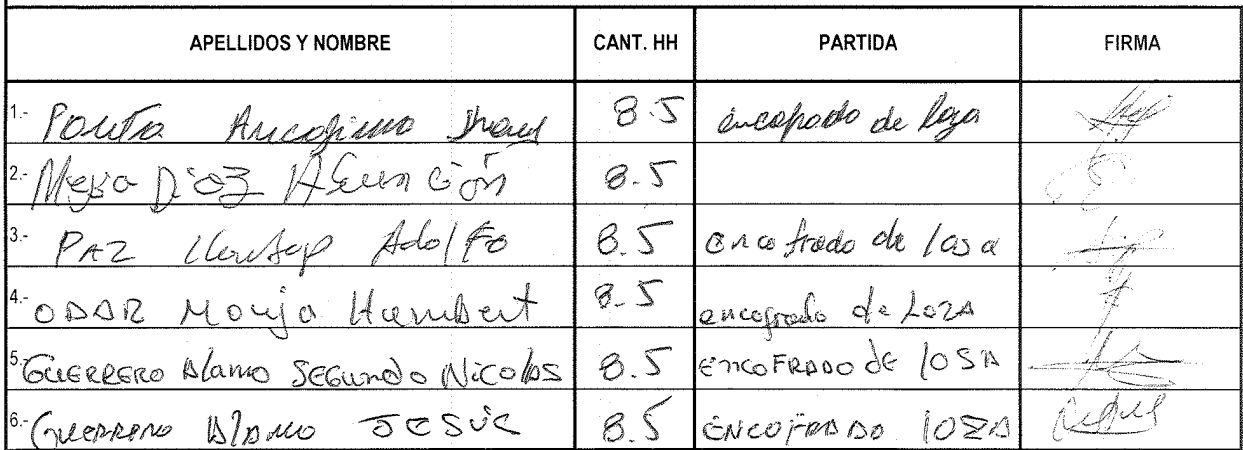 APELLIDOS Y NOMBRE CANT. HH PARTIDA FIRMA
1.- Ancajima 8.5 encofrado de loza
2.- Mejia Diaz Asuncion 8.5
3.- PAZ Adolfo 8.5 encofrado de losa
4.- ODAR Monja Humbert 8.5 encofrado de LOZA
5.- GUERRERO Alamo SEGUNDO NICOLAS 8.5 ENCOFRADO de LOSA
6.- GUERRERO ALAMO JESUS 8.5 ENCOFRADO LOZA